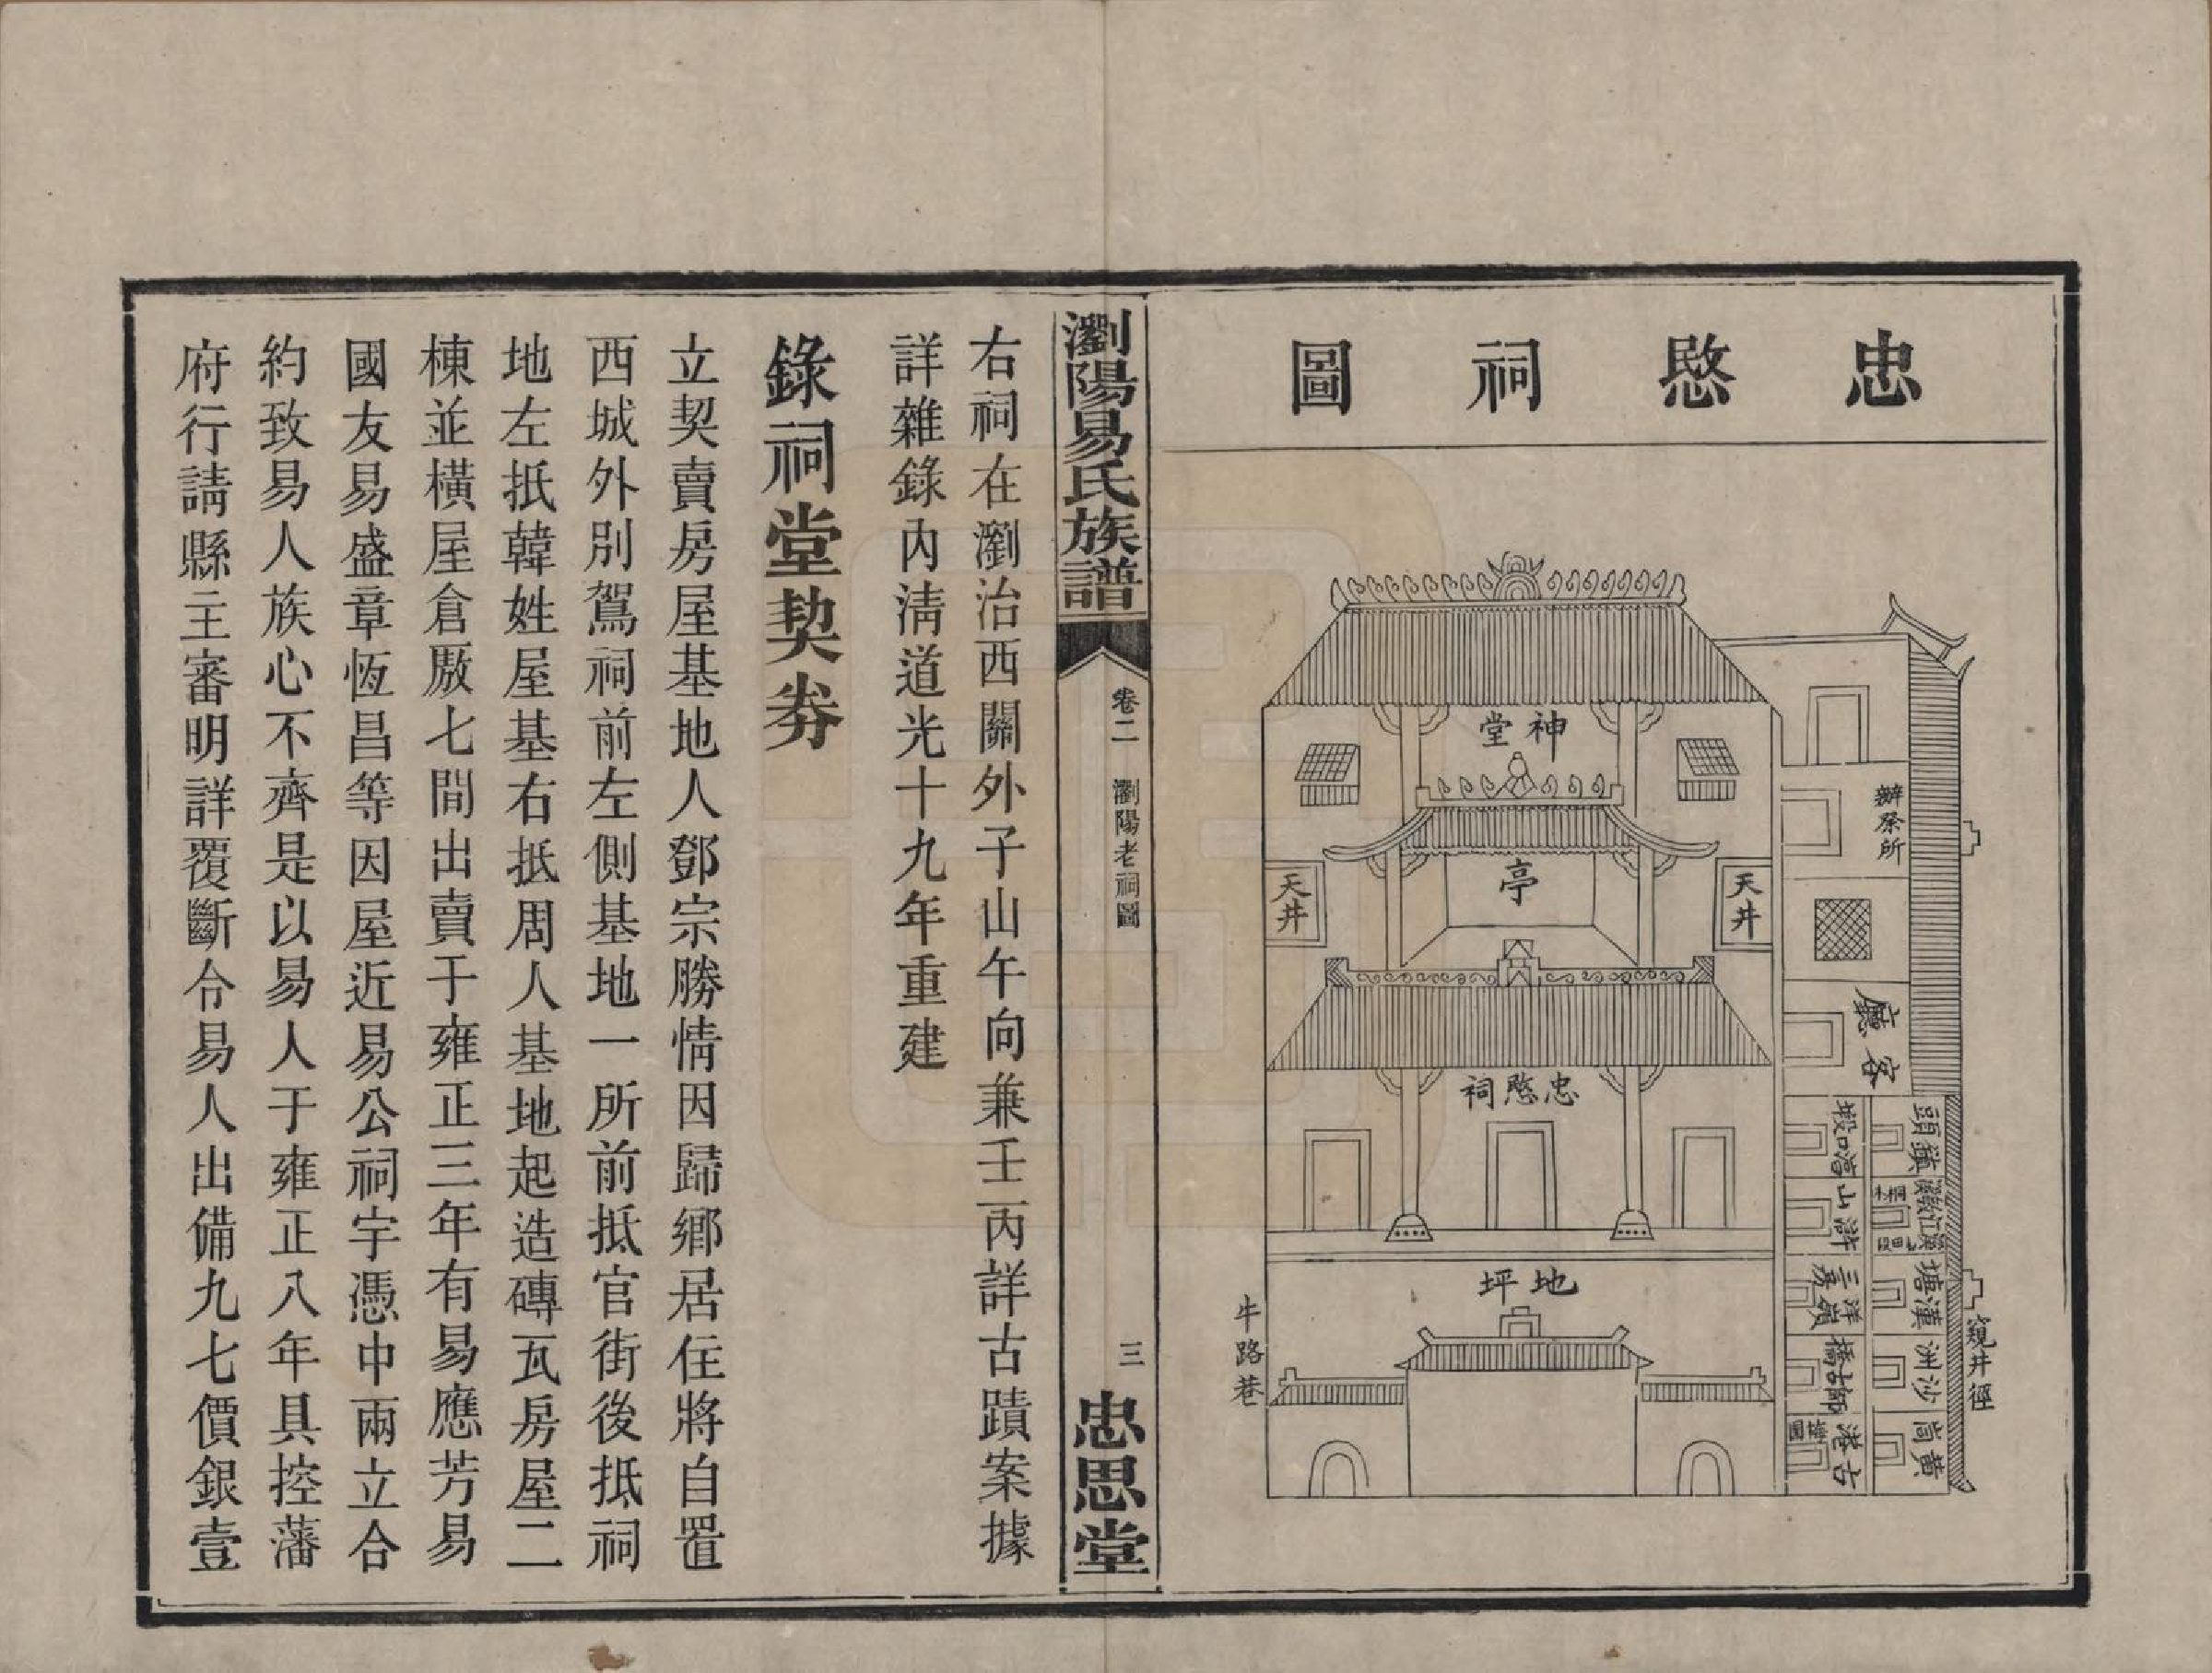 忠愍祠圖
神堂
亭
天井
天井
忠愍祠
地坪
牛路巷
辦祭所
客廳
窺井徑
瀏陽易氏族譜
卷二
瀏陽老祠圖
三
忠思堂
右祠在瀏治西關外子山午向兼壬丙詳古蹟案據
詳雜錄內淸道光十九年重建
錄祠堂契券
立契賣房屋基地人鄧宗勝情因歸鄉居住將自置
西城外別駕祠前左側基地一所前抵官街後抵祠
地左抵韓姓屋基右抵周人基地起造磚瓦房屋二
棟並橫屋倉廒七間出賣于雍正三年有易應芳易
國友易盛章恆昌等因屋近易公祠宇憑中兩立合
約致易人族心不齊是以易人于雍正八年具控藩
府行請縣主審明詳覆斷令易人出備九七價銀壹